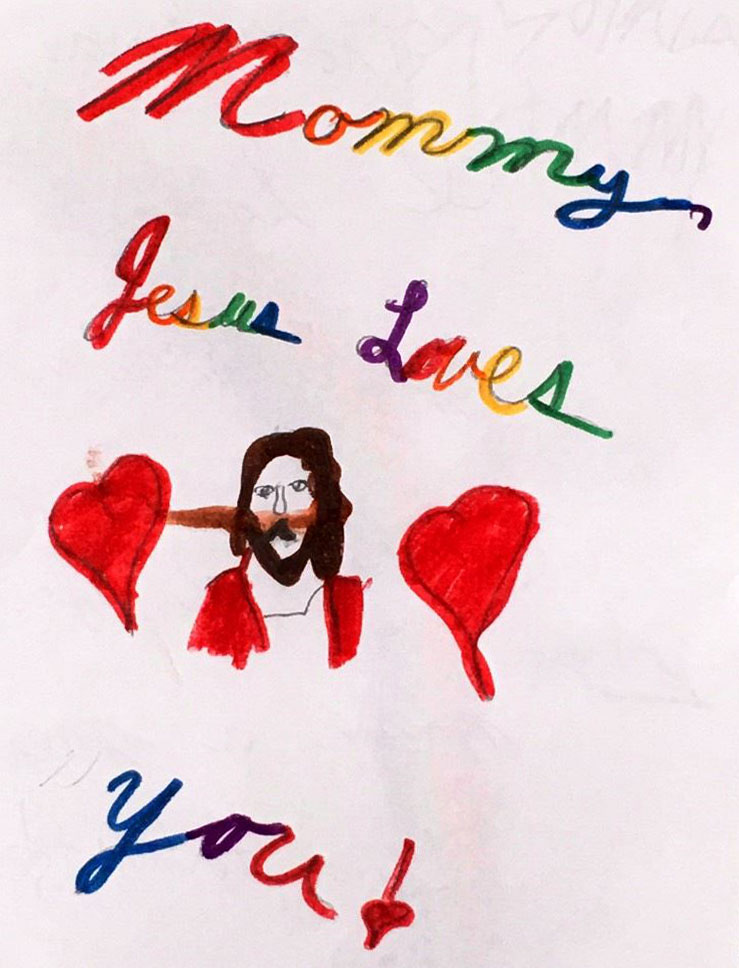 Mommy,
Jesus Loves
You!